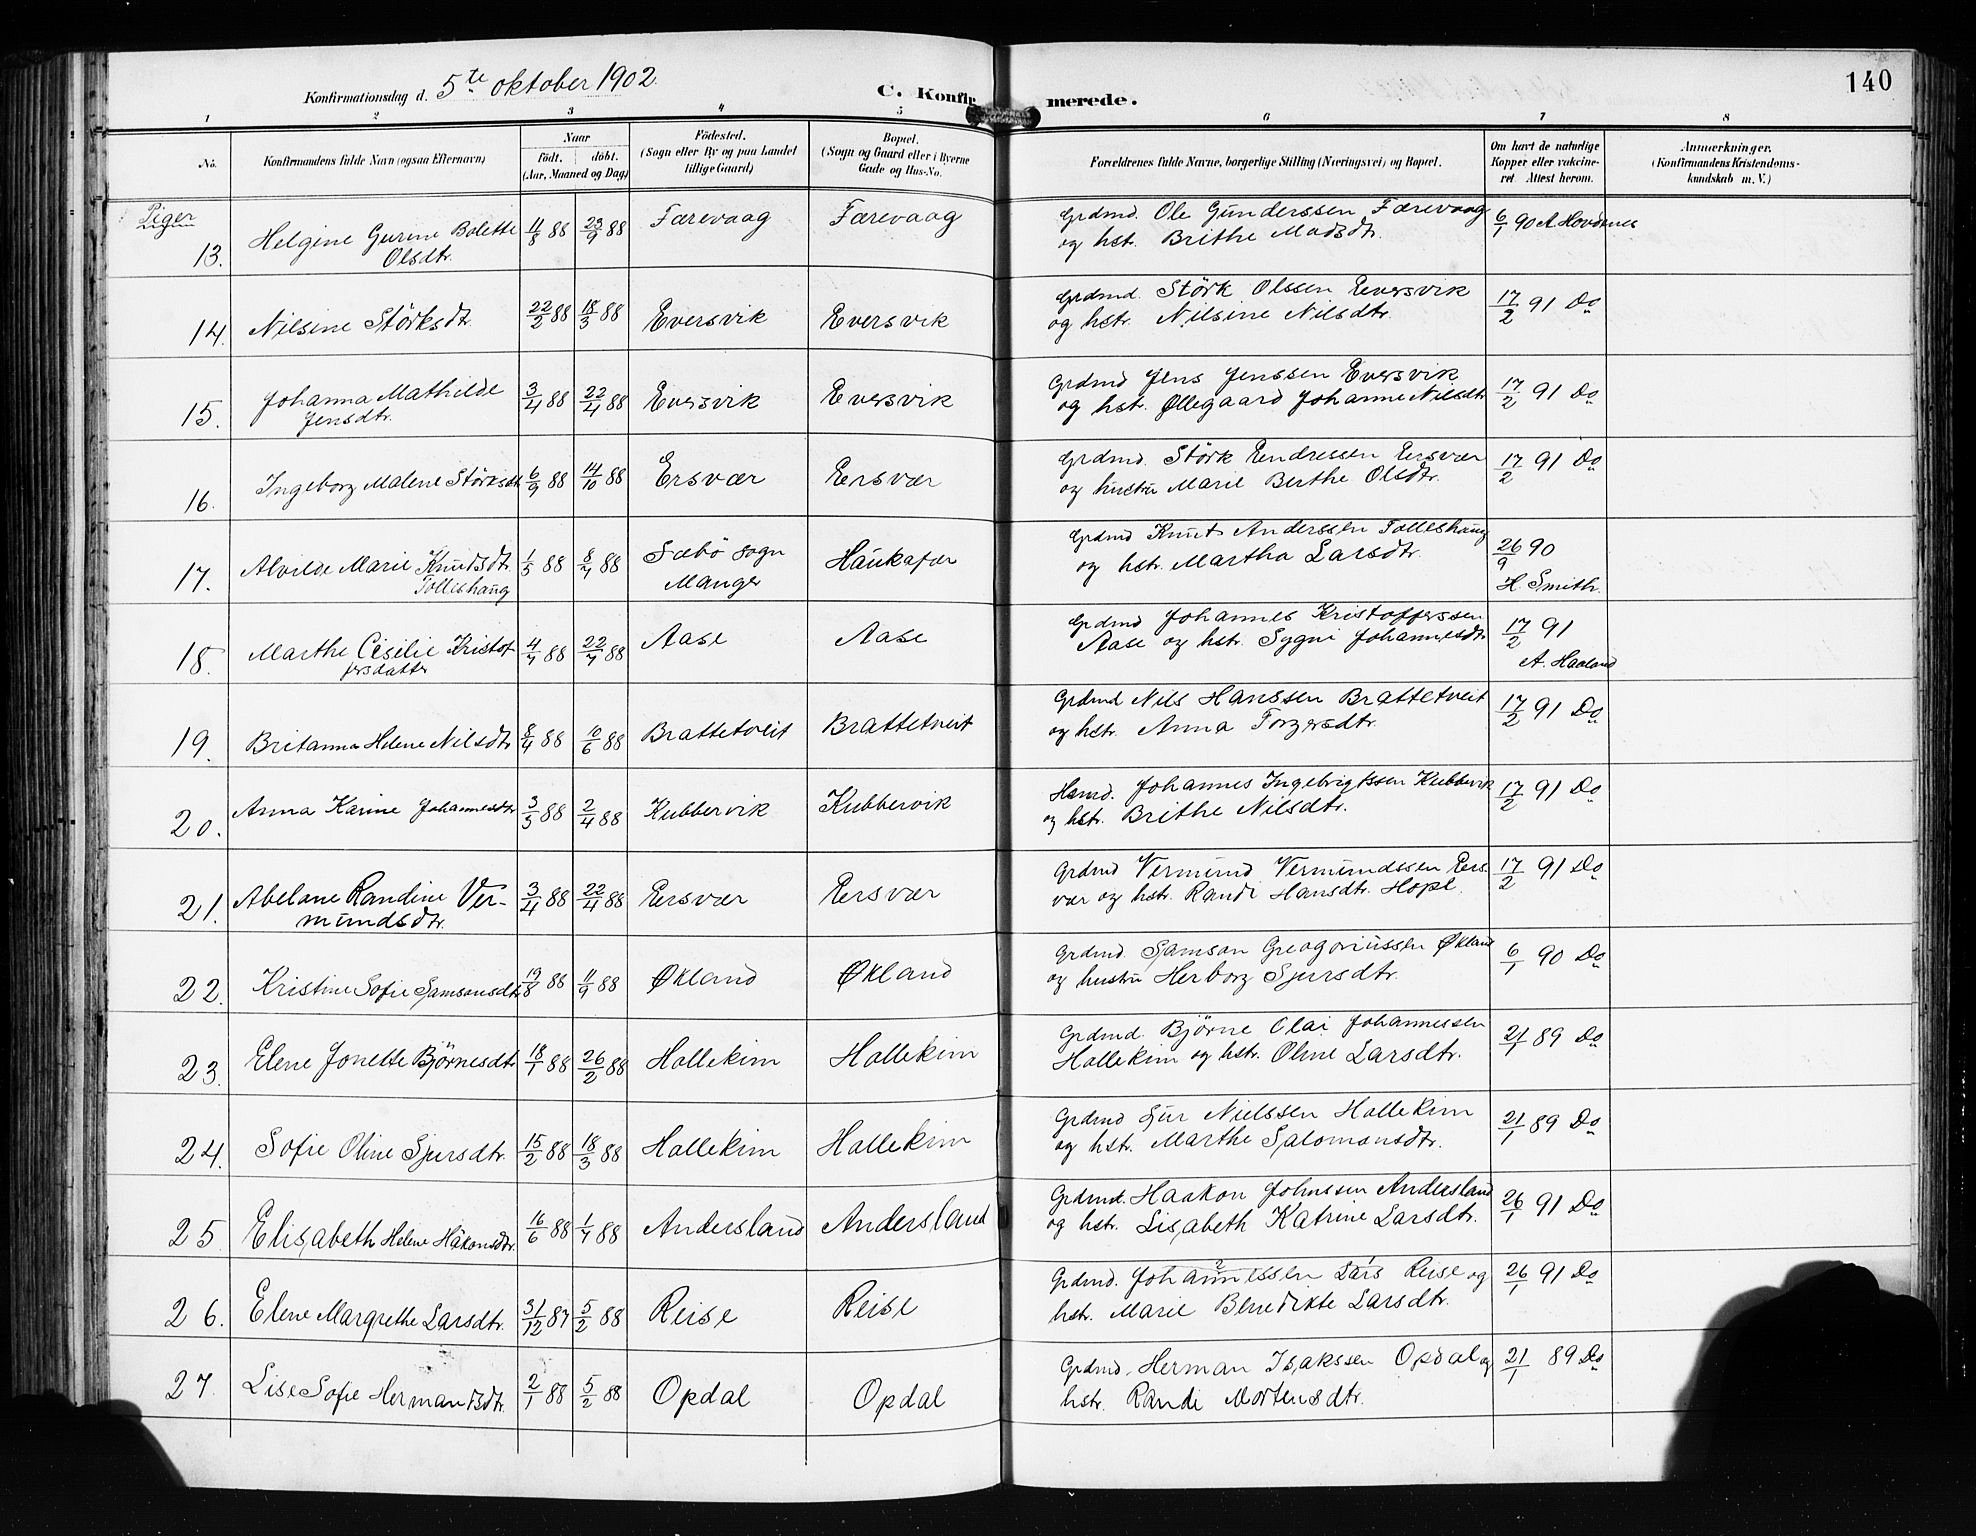 140
Konfirmationsdag d. 5te oktober 1902.
C. Konfirmerede.
1 2 3 4 5 6 7 8
No.
Konfirmandens fulde Navn (ogsaa Efternavn)
Naar
födt. döbt.
(Aar, Maaned og Dag)
Födested.
(Sogn eller By og paa Landet
tillige Gaard)
Bopæl.
(Sogn og Gaard eller i Byerne
Gade og Hus-No.
Forældrenes fulde Navne, borgerlige Stilling (Næringsvei) og Bopæl.
Om havt de naturlige
Kopper eller vakcine-
ret Attest herom.
Anmærkninger.
(Konfirmandens Kristendoms-
kundskab m. V.)
Piger
13. Helgine Gurine Bolette 11/8 88 23/9 88 Færevaag Færevaag Grdmd. Ole Gunderssen Færevaag 6/1 90 A. Hovdenes
Olsdtr. og hst. Brithe Madsdtr.
14. Nilsine Störksdtr 22/2 88 18/3 88 Eversvik Eversvik Grdmd. Störk Olssen Eversvik 17/2 91 Do
og hstr. Nilsine Nilsdtr.
15. Johanna Mathilde 3/4 88 22/4 88 Eversvik Eversvik Grdmd Jens Jenssen Eversvik 17/2 91 Do
Jensdtr. og hst. Øllegaard Johanne Nilsdtr
16. Ingeborg Malene Störksdtr 6/9 88 14/10 88 Ersvær Ersvær Grdmd. Störk Endressen Ersvær 17/2 91 Do
og hustru Marie Berthe Olsdtr.
17. Alvilde Marie Knudsdtr. 1/5 88 8/7 88 Sæbö sogn Haukafær Grdmd Knut Anderssen Tolleshaug 26/9 90
Tollishaug Manger og hst. Martha Larsdtr. H. Smith.
18. Marthe Cesilie Kristof 4/7 88 22/7 88 Aase Aase Grdmd Johannes Kristofferssen 17/2 91
fersdatter Aase og hstr. Sygni Johannesdtr A. Haaland
19. Britanna Helene Nilsdtr 8/4 88 10/6 88 Brattetveit Brattetveit Grdmd Nils Hanssen Brattetveit 17/2 91 Do
og hstr. Anna Torgersdtr.
20. Anna Karine Johannesdtr 3/3 88 2/4 88 Kubbervik Kubbervik Johannes Ingebrigtssen Kubbervik 17/2 91 Do
og hstr. Brithe Nilsdtr.
21. Abelane Randine Ver- 3/4 88 22/4 88 Ersvær Ersvær Grdmd Vermund Vermundssen Ers 17/2 91 Do
mundsdtr. vær og hstr. Randi Hansdtr. Hope.
22. Kristine Sofie Samsonsdtr 19/8 88 11/9 88 Økland Økland Grdmd. Samson Greagoriussen Økland 6/1 90 Do
og hustru Herborg Sjursdtr.
23. Elene Jonette Björnesdtr 18/1 88 26/2 88 Hallekim Hallekim Grdmd. Björne Olai Johannessen 21/1 89 Do
Hallekim og hst. Oline Larsdtr.
24. Sofie Oline Sjursdtr. 15/2 88 18/3 88 Hallekim Hallekim Grdmd Sjur Nielssen Hallekim 21/1 89 Do
og hst. Marthe Salomonsdtr.
25. Elisabeth Helene Håkonsdtr. 16/6 88 1/7 88 Andersland Andersland Grdmd. Haakon Johnssen Andersland 26/1 91 Do
og hst. Lisabeth Katrine Larsdtr.
26. Elene Margrethe Larsdtr. 31/12 87 5/2 88 Reise Reise Grdmd. Johannessen Lars Reise og 26/1 91 Do
hstr. Marie Benedikte Larsdtr.
27. Lise Sofie Hermandsdtr. 2/1 88 5/2 88 Opdal Opdal Grdmd. Herman Isakssen Opdal og 21/1 89 Do
hstr. Randi Mortensdtr.